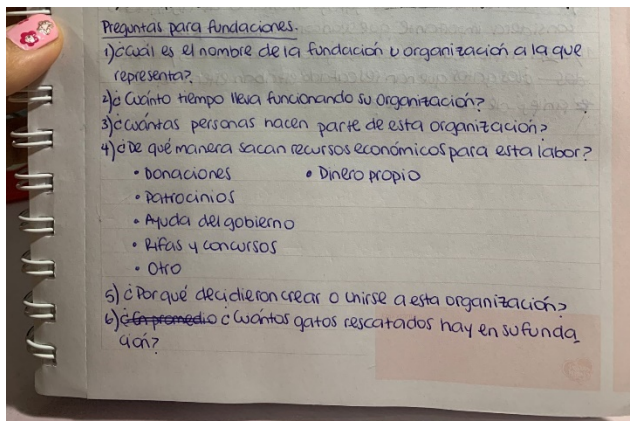 Preguntas para fundaciones.
1) ¿Cuál es el nombre de la fundación u organización a la que
representa?
2) ¿Cuánto tiempo lleva funcionando su organización?
3) ¿cuántas personas hacen parte de esta organización?
4) ¿De qué manera sacan recursos económicos para esta labor?
• Donaciones • Dinero propio
• Patrocinios
• Ayuda del gobierno
• Rifas y concursos
• Otro
5) ¿Por qué decidieron crear o unirse a esta organización?
6) ¿En promedio ¿Cuántos gatos rescatados hay en su funda
ción?